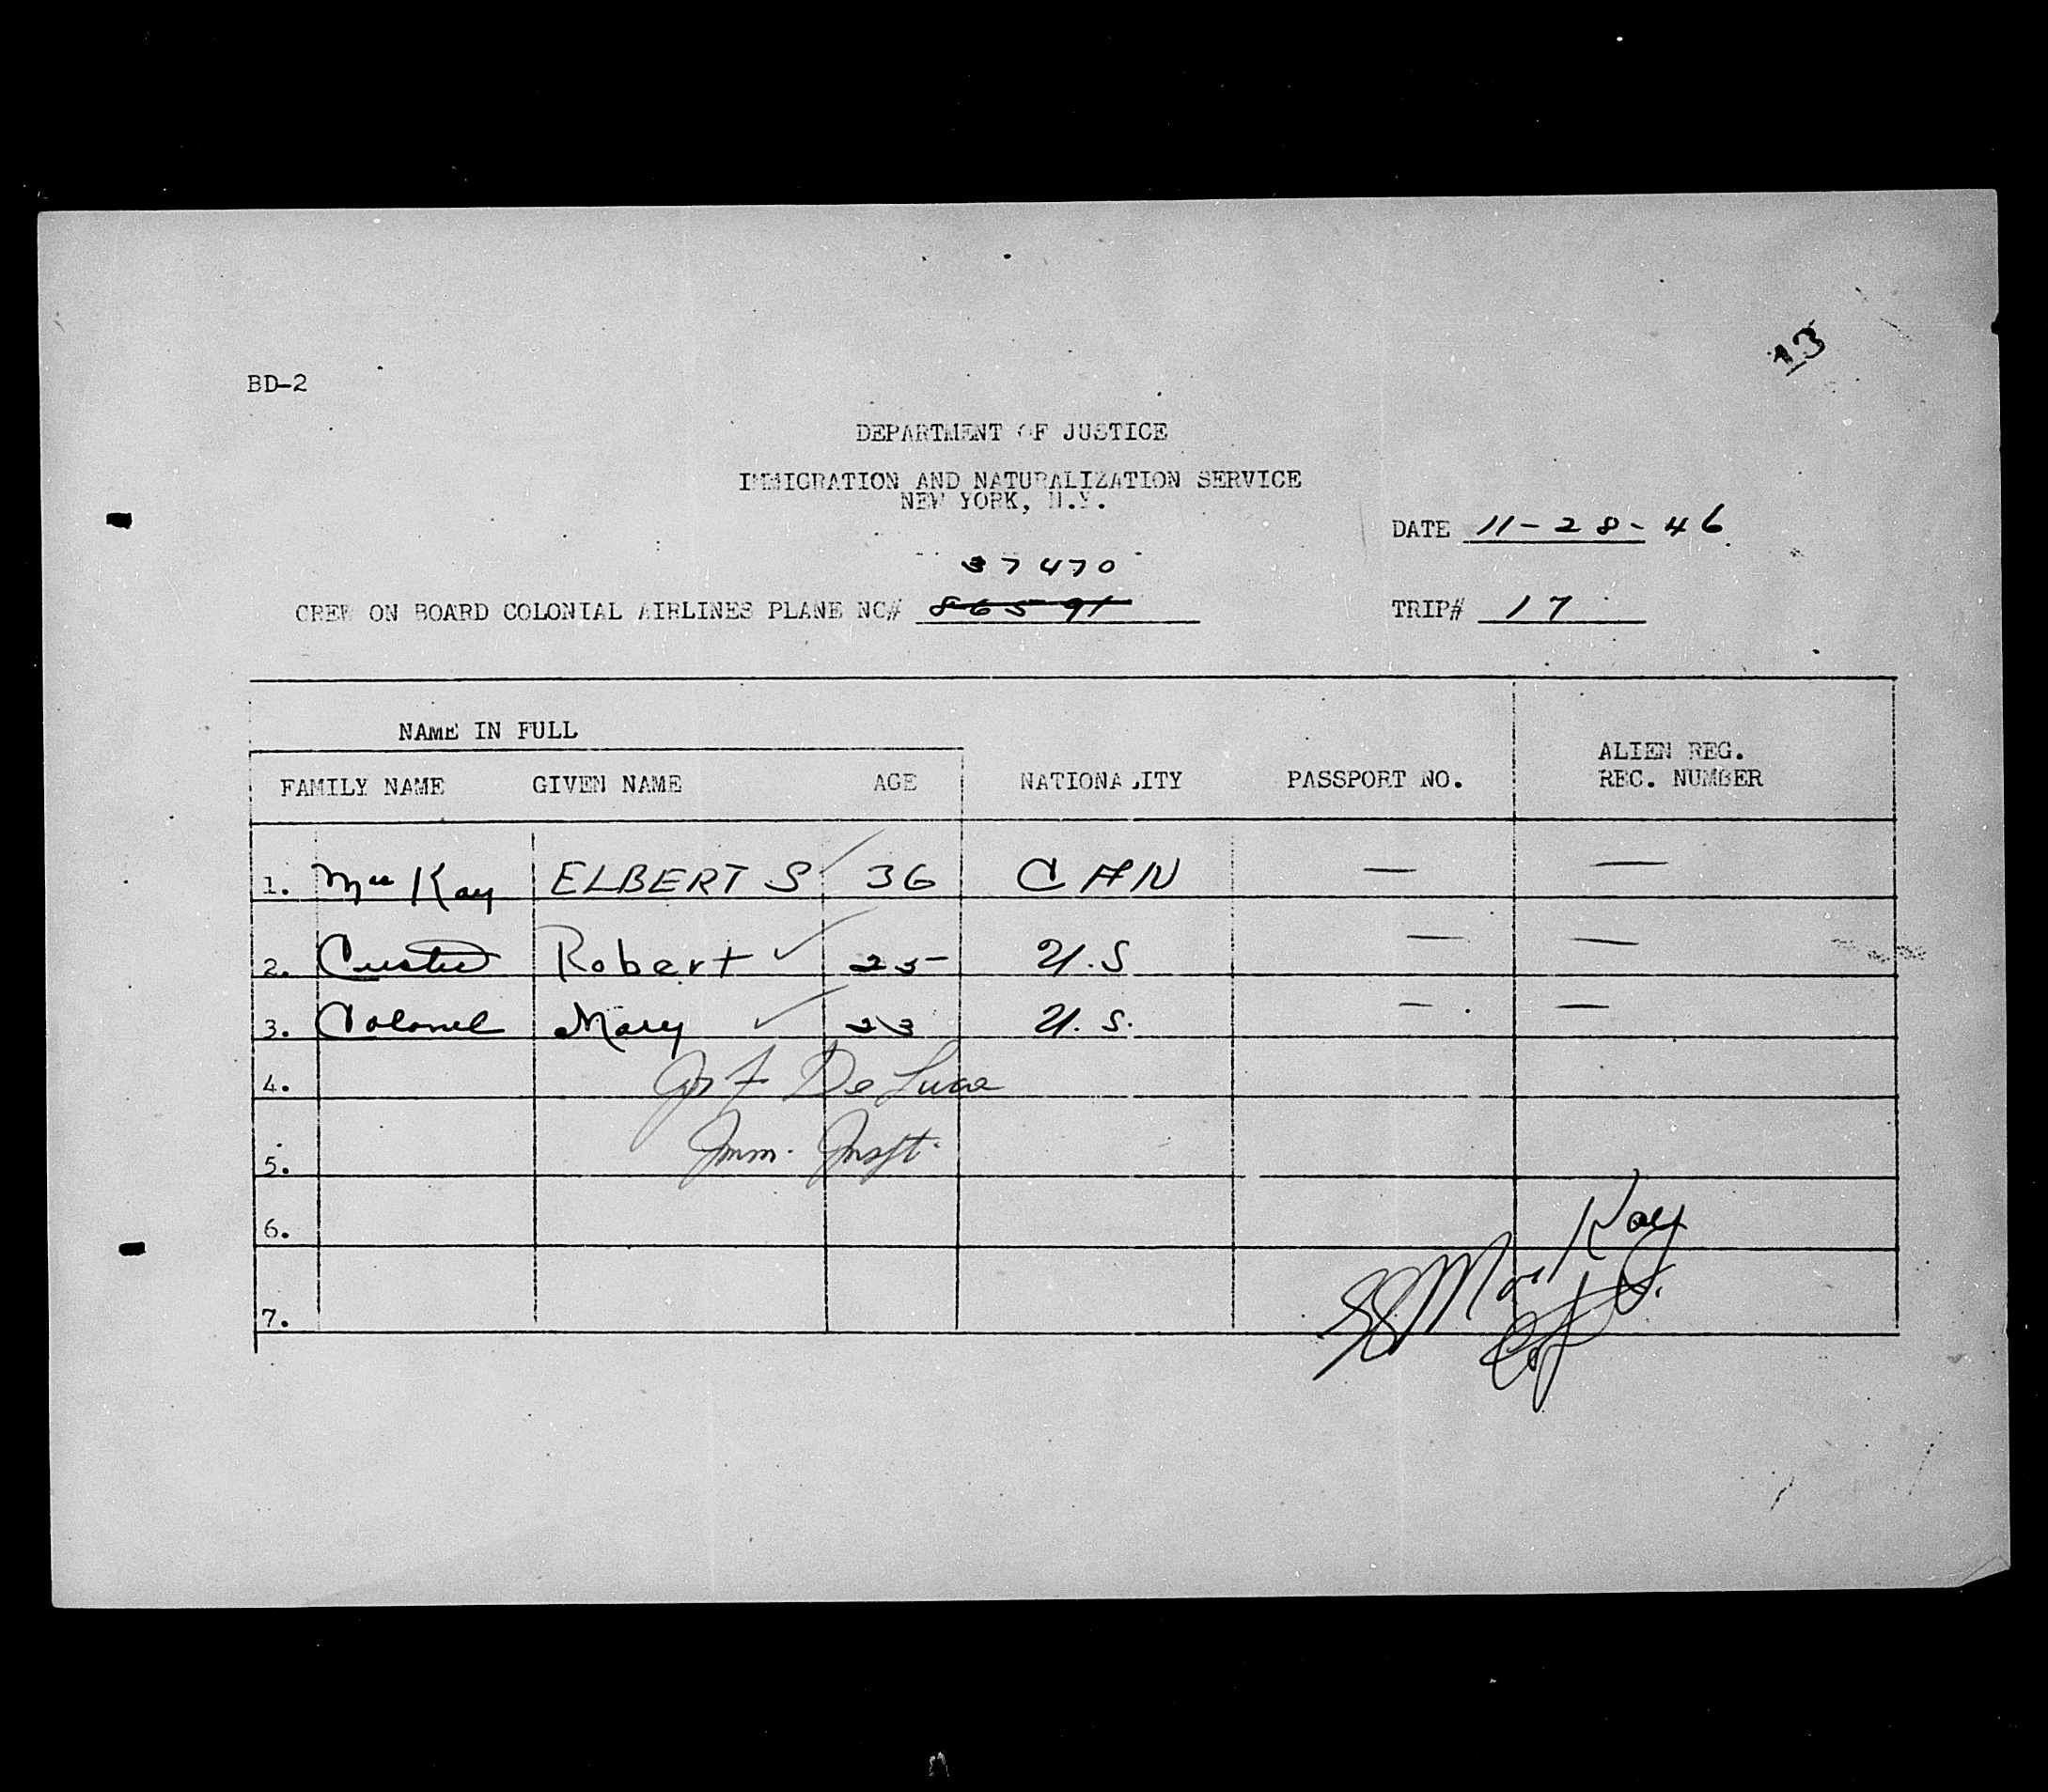 13
BD-2
DEPARTMENT OF JUSTICE
IMMIGRATION AND NATURALIZATION SERVICE
NEW YORK, N.Y.
DATE 11-28-46
37470
CREW ON BOARD COLONIAL AIRLINES PLANE NC# 86591
TRIP# 17
NAME IN FULL
FAMILY NAME GIVEN NAME AGE NATIONALITY PASSPORT NO. ALIEN REG. REC. NUMBER
1. MacKay ELBERT S 36 CAN — —
2. Robert 25 U.S — —
3. Colonel Mary 23 U.S. — —
4. De Luca
5. Imm. Inspt.
6.
7.
MacKay